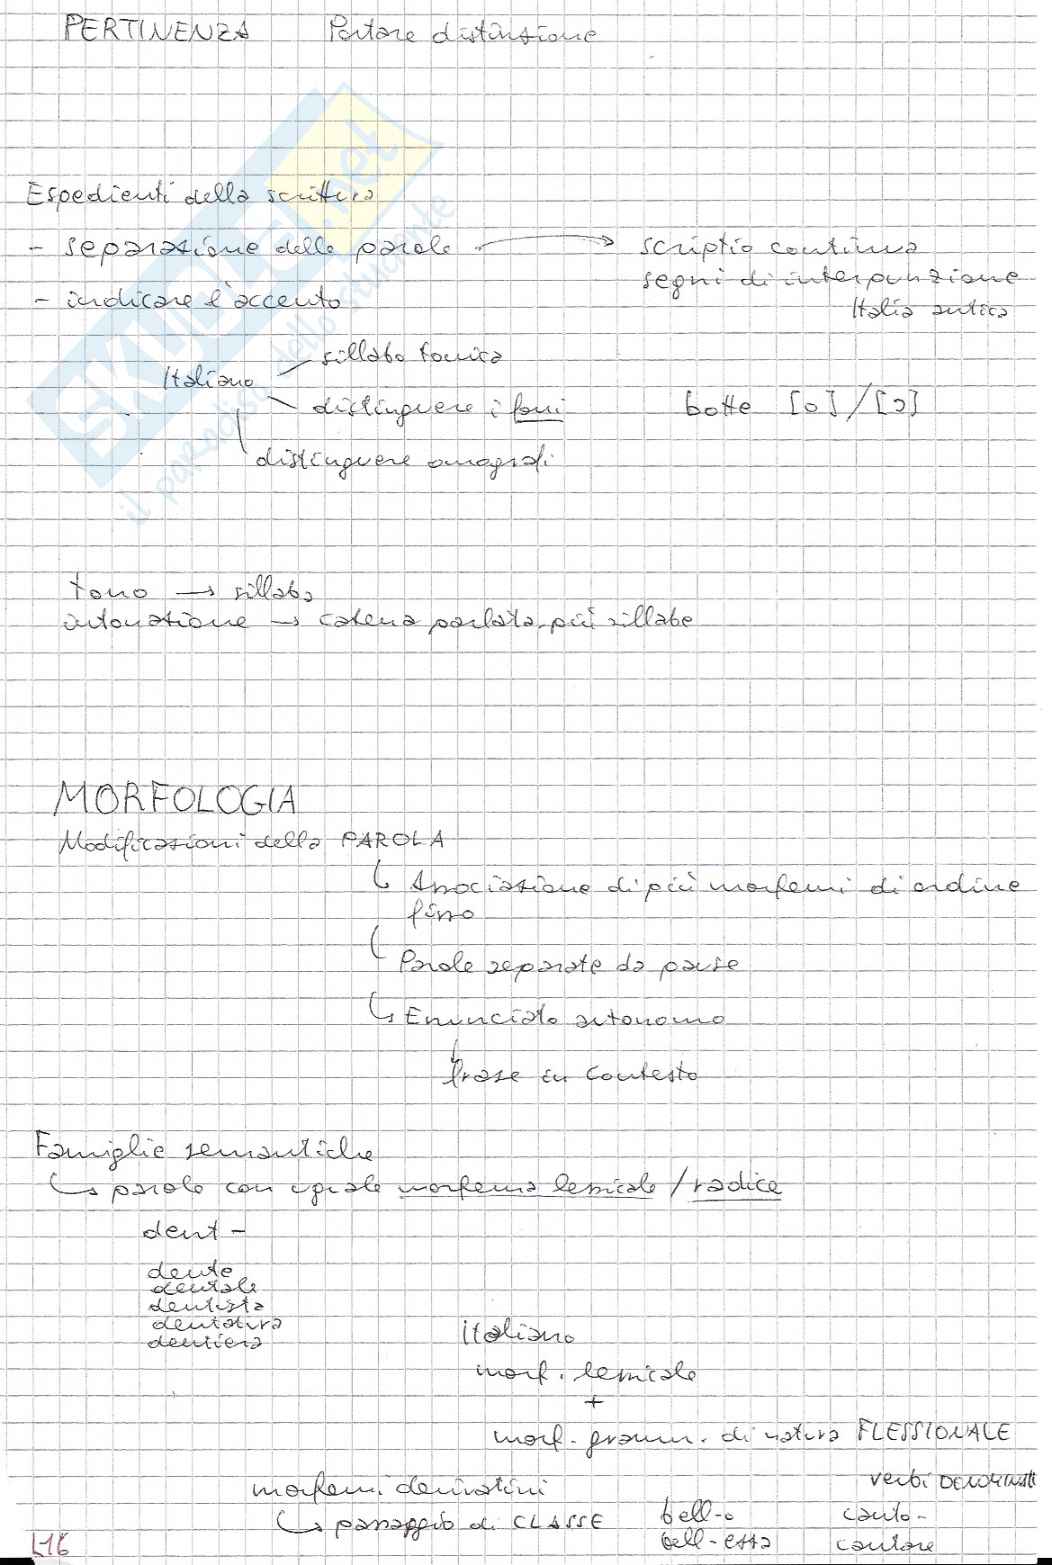 PERTINENZA Portare distinzione
Espedienti della scrittura
- separazione delle parole → scriptio continua
segni di interpunzione
Italia antica
- indicare l'accento
sillaba tonica
Italiano
distinguere i foni botte [o]/[ɔ]
distinguere omografi
tono → sillaba
intonazione → catena parlata, più sillabe
MORFOLOGIA
Modificazioni della PAROLA
↳ Associazione di più morfemi di ordine
fisso
Parole separate da pause
↳ Enunciato autonomo
frase in contesto
Famiglie semantiche
↳ parole con uguale morfema lessicale / radice
dent -
dente
dentale
dentista
dentatura
dentiera
italiano
morf. lessicale
+
morf. gramm. di natura FLESSIONALE
morfemi derivativi
↳ passaggio di CLASSE
verbi DENOMINALI
bell-o canto-
bell-ezza cantare
L16
SKUOLA.net
il paradiso dello studente